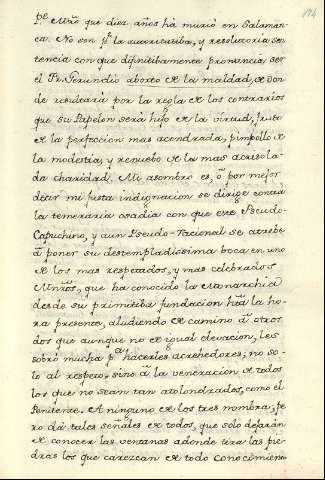 194
pᵉ. Mrõ que diez años há murió en Salaman-
ca. No son pª. la autoritatiba, y resolutoria sen-
tencia con que difinitibamente pronuncia ser
el Fr. Gerundio aborto de la maldad, de don
de resultará por la regla de los contrarios
que su Papelon será hijo de la virtud, fruto
de la perfeccion mas acendrada, pimpollo de
la modestia, y renuebo de la mas acrisola-
da charidad. Mi asombro es, ó por mejor
decir mi justa indignacion se dirige contra
la temeraria osadia con que este Pseudo-
Capuchino, y aun Pseudo-Racional se atrebe
á poner su destempladissima boca en uno
de los mas respetados, y mas celebrados
que ha conocido la Monarchia
desde su primitiba fundacion htã la ho-
ra presente, aludiendo de camino á otros
dos que aunque no de igual elevacion, les
sobró mucha pª. hacerles acrehedores; no so-
lo al respeto, sino á la veneracion de todos
los que no sean tan atolondrados, como el
Penitente. A ninguno de los tres nombra, pe-
ro dá tales señales de todos, que solo dejarán
de conocer las ventanas adonde tira las pie-
dras los que carezcan de todo conocimien